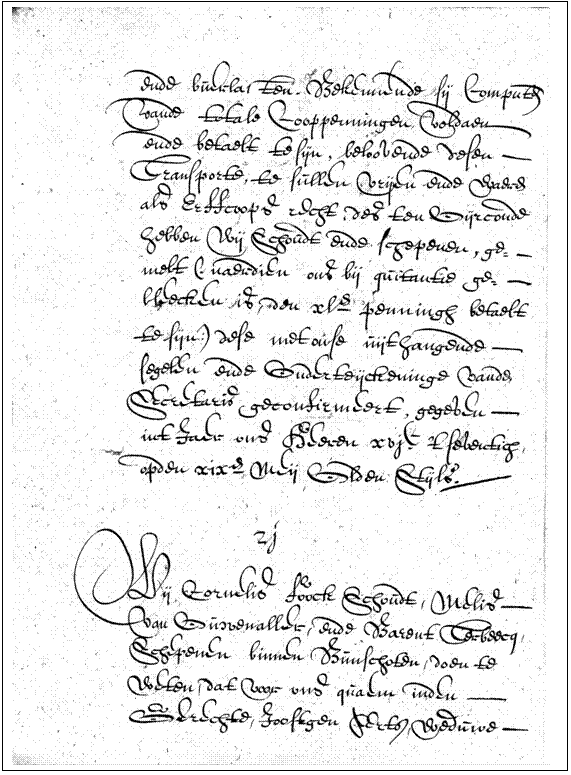 ende verclarten Bekennende sij Comparte
vande totale Cooppenningen, Voldaen
ende betaelt te sijn, beloovende desen
Transporte, te sullen vrijen ende Waere
als Erffcoops recht, des ten Oirconde
hebben Wij Schoudt ende schepenen, ge-
melt (naerdien ons bij quitantie ge-
bleecken is, den xle penningh betaelt
te sijn:) dese met onse uijthangende
segelen ende Onderteijckeninge vande
Secretaris geconfirmeert, gegeven
int Jaer ons Heeren xvjc tseventich,
opden xixe Meij Olden Stijls.
2j
Wij Cornelis Foock Schoudt, Melis
van Duvenaller, ende Barent Terbeecq,
Schepenen binnen Bunschoten, doen te
Weten, dat voor ons quam inden
Gerechte, Joosgen Aerts, Weduwe